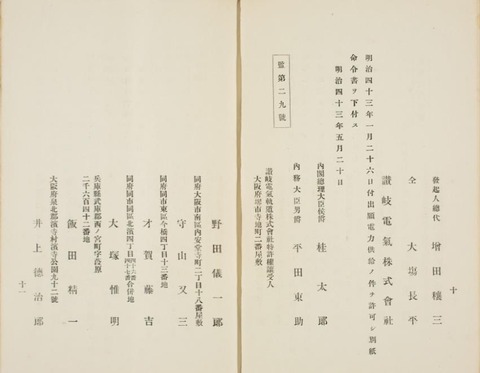 十
發起人總代　增田穰三
仝　大塲長平
讃岐電氣株式會社
明治四十三年一月二十六日付出願電力供給ノ件ヲ許可シ別紙
命令書ヲ下付ス
明治四十三年五月二十日
內閣總理大臣侯爵　桂太郞
內務大臣男爵　平田東助
監第二九號
讃岐電氣軌道株式會社特許權讓受人
大阪府堺市寺地町二番屋敷
野田儀一郞
同府大阪市南區內安堂寺町二丁目十八番屋敷
守山又三
同府同市東區今橋四丁目十三番地
才賀藤吉
同府同市同區北濱四丁目四十六番四十七番合併地
大塚惟明
兵庫縣武庫郡西ノ宮町字荿原
二千六百四十二番地
飯田精一
大阪府泉北郡濱寺村濱寺公園九十二號
井上德治郞
十一